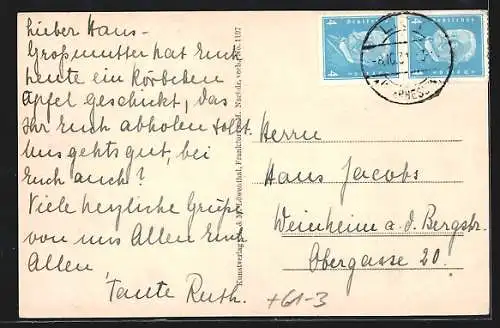 Lieber Hans –
Großmutter hat Euch
heute ein Körbchen
Äpfel geschickt, das
Ihr Euch abholen sollt.
Uns gehts gut, bei
Euch auch?
Viele herzliche Grüße
von uns Allen Euch
Allen
Tante Ruth.
Kunstverlag Löwenthal, Frankfurt Nachdr. verb. No. 1107
4
4
Herrn
Hans Jacobs
Weinheim a.d. Bergstr.
Obergasse 20.
+61-3